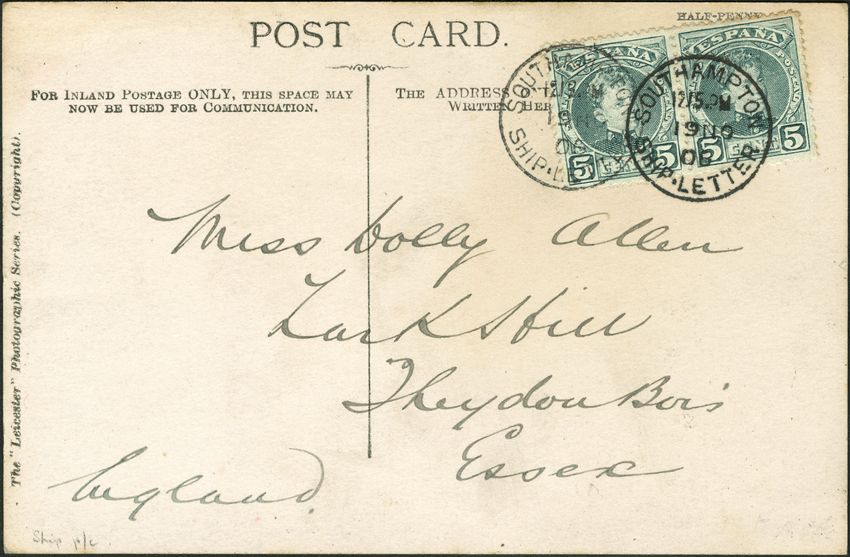 HALF-PENNY
POST CARD.
FOR INLAND POSTAGE ONLY, THIS SPACE MAY
NOW BE USED FOR COMMUNICATION.
THE ADDRESS
WRITTEN HER
ESPAÑA
ESPAÑA
5
5 5
SOUTHAMPTON
SHIP·LETTER
SOUTHAMPTON
12/5.PM
19 NO
06
SHIP·LETTER
Miss Dolly Allen
Lark Hill
Theydon Bois
Essex
England
Ship p/c.
The "Leicester" Photographic Series. (Copyright).